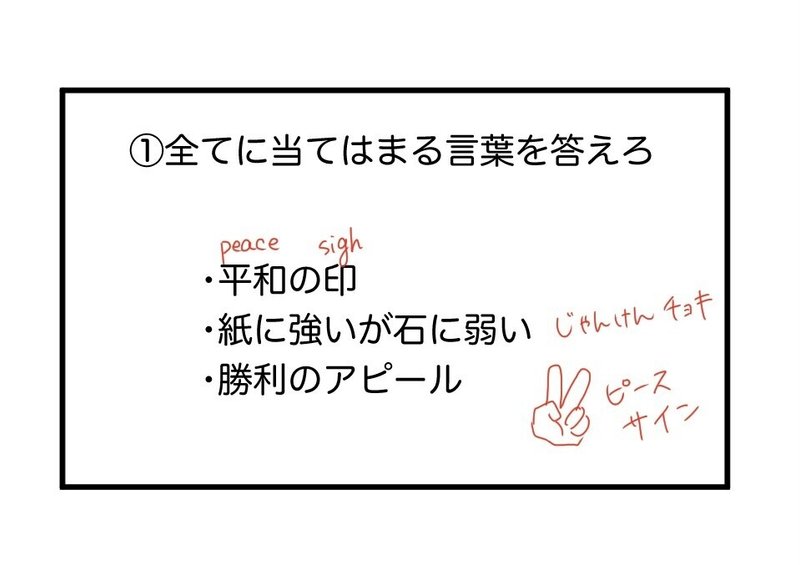 ①全てに当てはまる言葉を答えろ
peace sigh
・平和の印
・紙に強いが石に弱い じゃんけん チョキ
・勝利のアピール
ピース
サイン